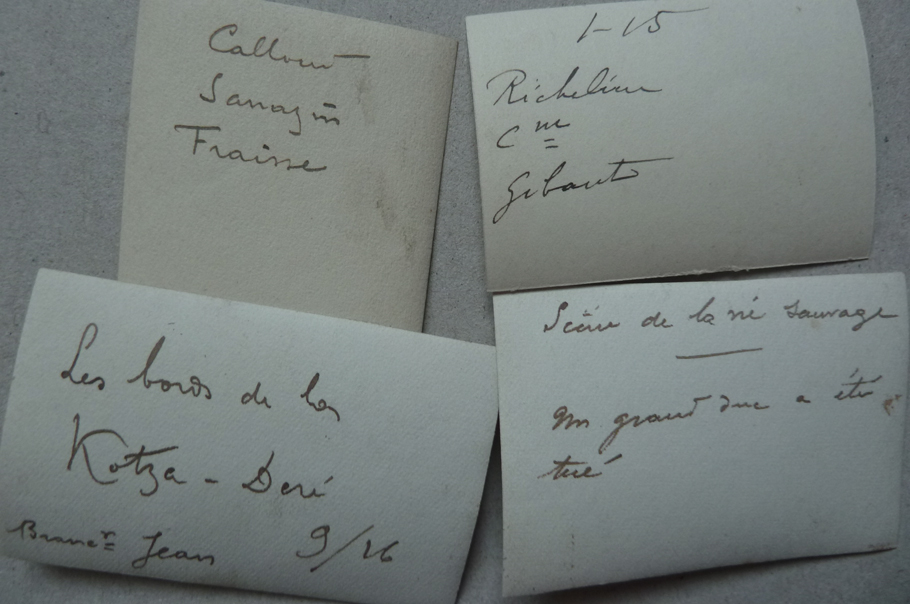 Callout
Sarrazin
Fraisse
1-15
Richelieu
C ne
Gibault
Les bords de la
Kotza - Déré
Brancr Jean 9/16
Scène de la vie sauvage
Un grand duc a été
tué